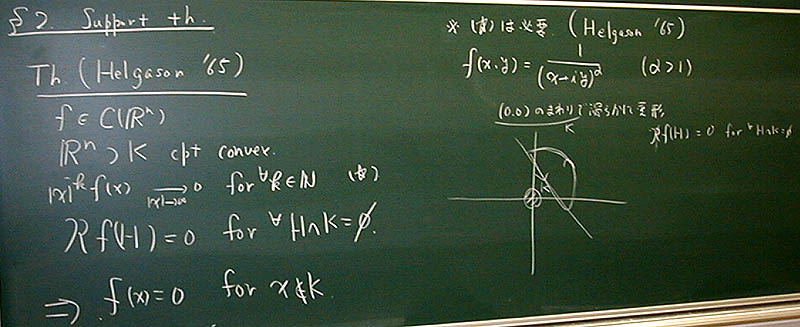 §2. Support th.
Th. (Helgason '65)
f ∈ C(ℝⁿ)
ℝⁿ ⊃ K cpt convex.
|x|ᵏ f(x) → 0 for ∀k ∈ ℕ (☆)
|x|→∞
Rf(H) = 0 for ∀H∩K = ∅.
⇒ f(x) = 0 for x ∉ K.
※ (☆) は必要. (Helgason '65)
f(x,y) = 1/(x+iy)^α (α>1)
(0,0) のまわりで滑らかに変形
K
Rf(H) = 0 for ∀H∩K=∅
K